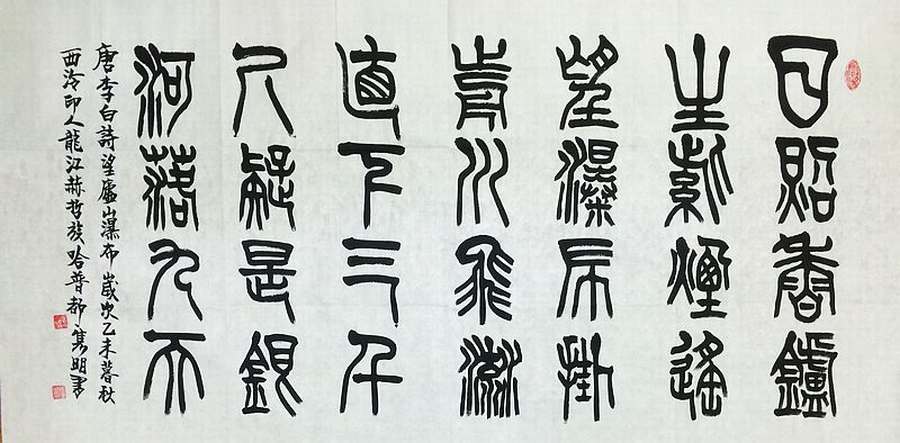 日照香鑪
生紫煙遙
望瀑布掛
前川飛流
直下三千
尺疑是銀
河落九天
唐李白詩望廬山瀑布歲次乙未暮秋
西泠印人龍江赫哲族哈普都雋明書